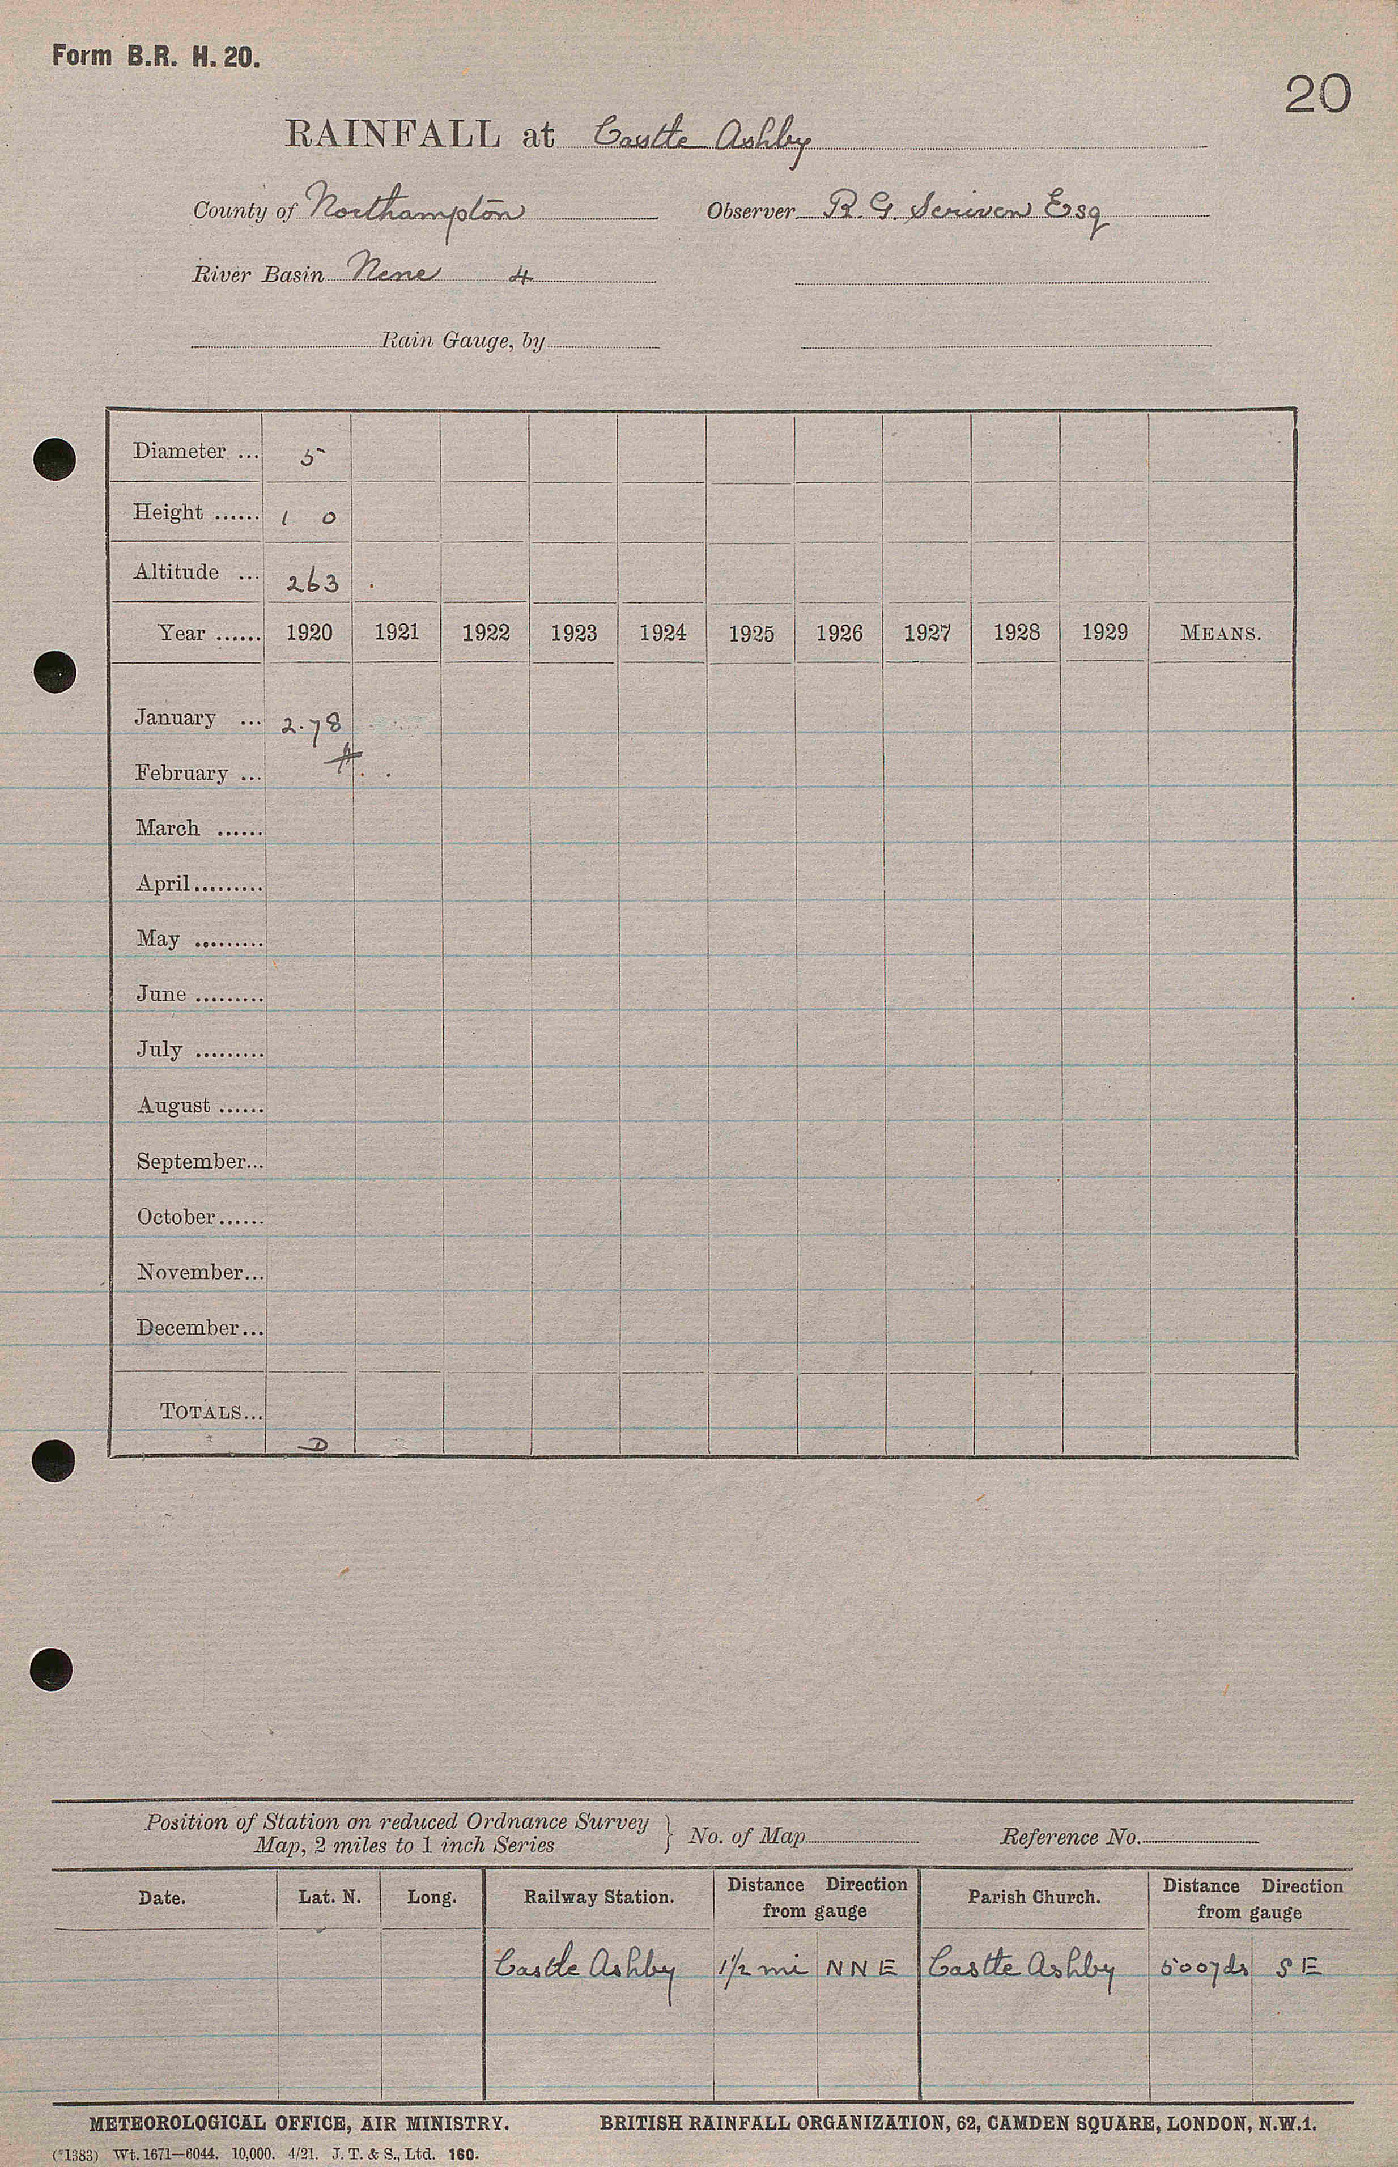 Form B.R. H. 20.
20
RAINFALL at Castle Ashby
County of Northampton Observer R. G. Scriven Esq
River Basin Nene 4
Rain Gauge, by
Diameter ... 5
Height ...... 1 0
Altitude ... 263
Year ...... 1920 1921 1922 1923 1924 1925 1926 1927 1928 1929 MEANS.
January ... 2.78
February ...
March ......
April.........
May .........
June .........
July .........
August ......
September...
October......
November...
December...
TOTALS...
D
Position of Station on reduced Ordnance Survey
Map, 2 miles to 1 inch Series } No. of Map Reference No.
Date. Lat. N. Long. Railway Station. Distance Direction from gauge Parish Church. Distance Direction from gauge
Castle Ashby 1½ mi NNE Castle Ashby 500yds SE
METEOROLOGICAL OFFICE, AIR MINISTRY. BRITISH RAINFALL ORGANIZATION, 62, CAMDEN SQUARE, LONDON, N.W.1.
(*1383) Wt. 1671—6044. 10,000. 4/21. J. T. & S., Ltd. 160.